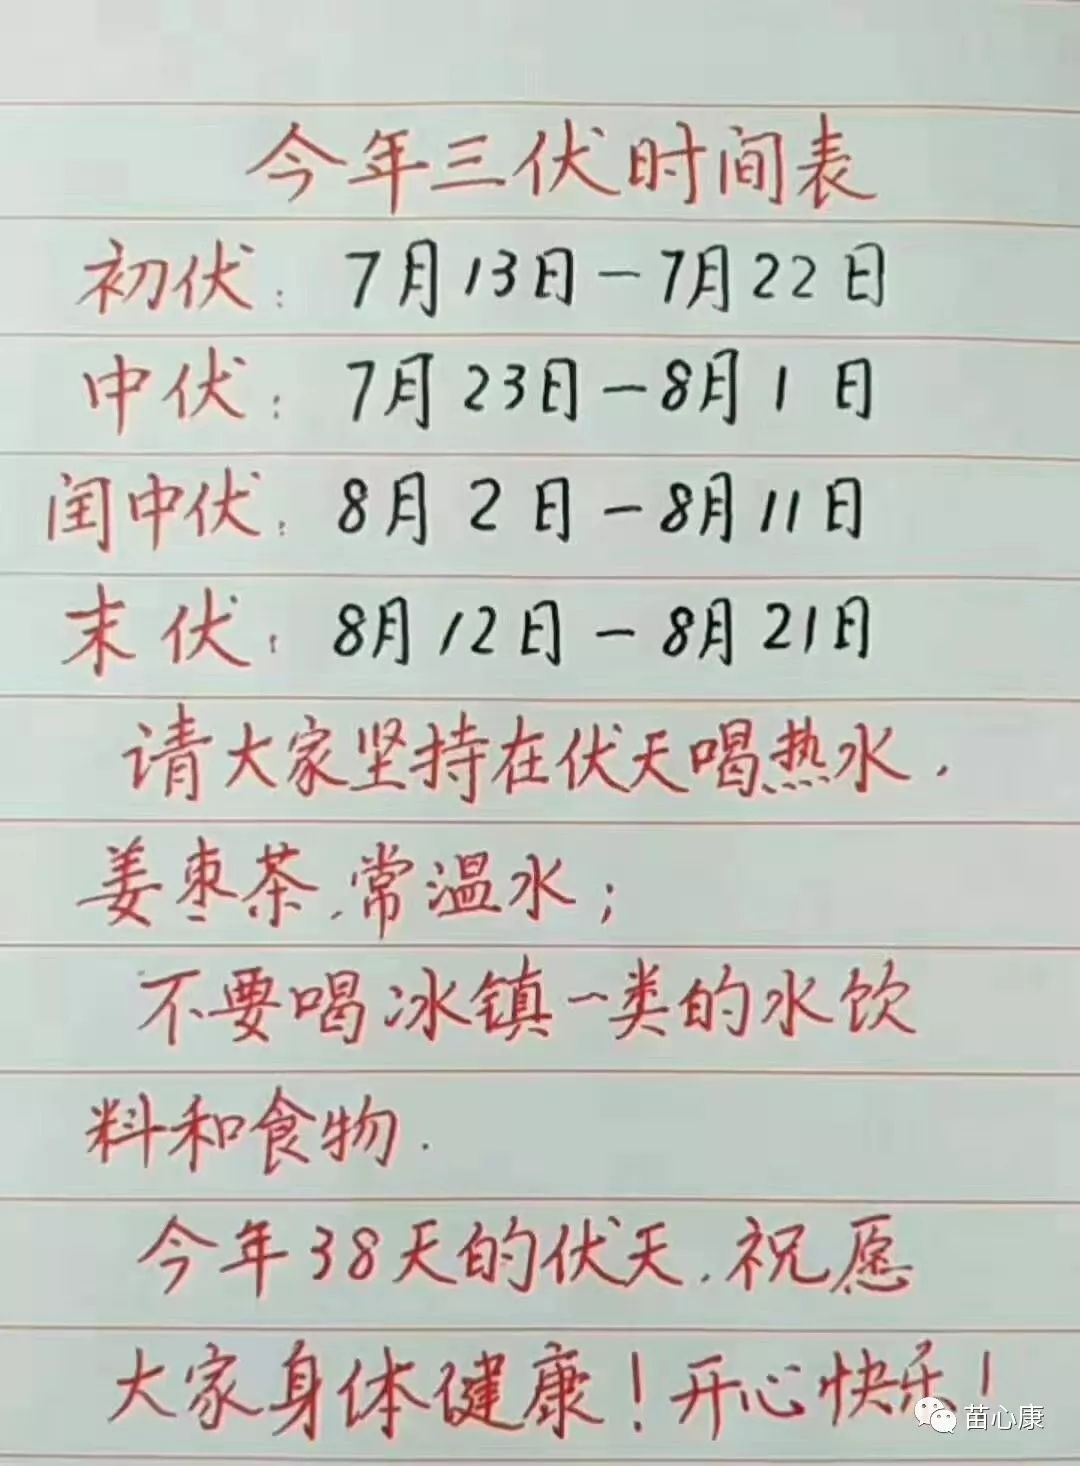 今年三伏时间表
初伏：7月13日－7月22日
中伏：7月23日－8月1日
闰中伏：8月2日－8月11日
末伏：8月12日－8月21日
请大家坚持在伏天喝热水，
姜枣茶，常温水；
不要喝冰镇一类的水饮
料和食物．
今年38天的伏天，祝愿
大家身体健康！开心快乐！
苗心康